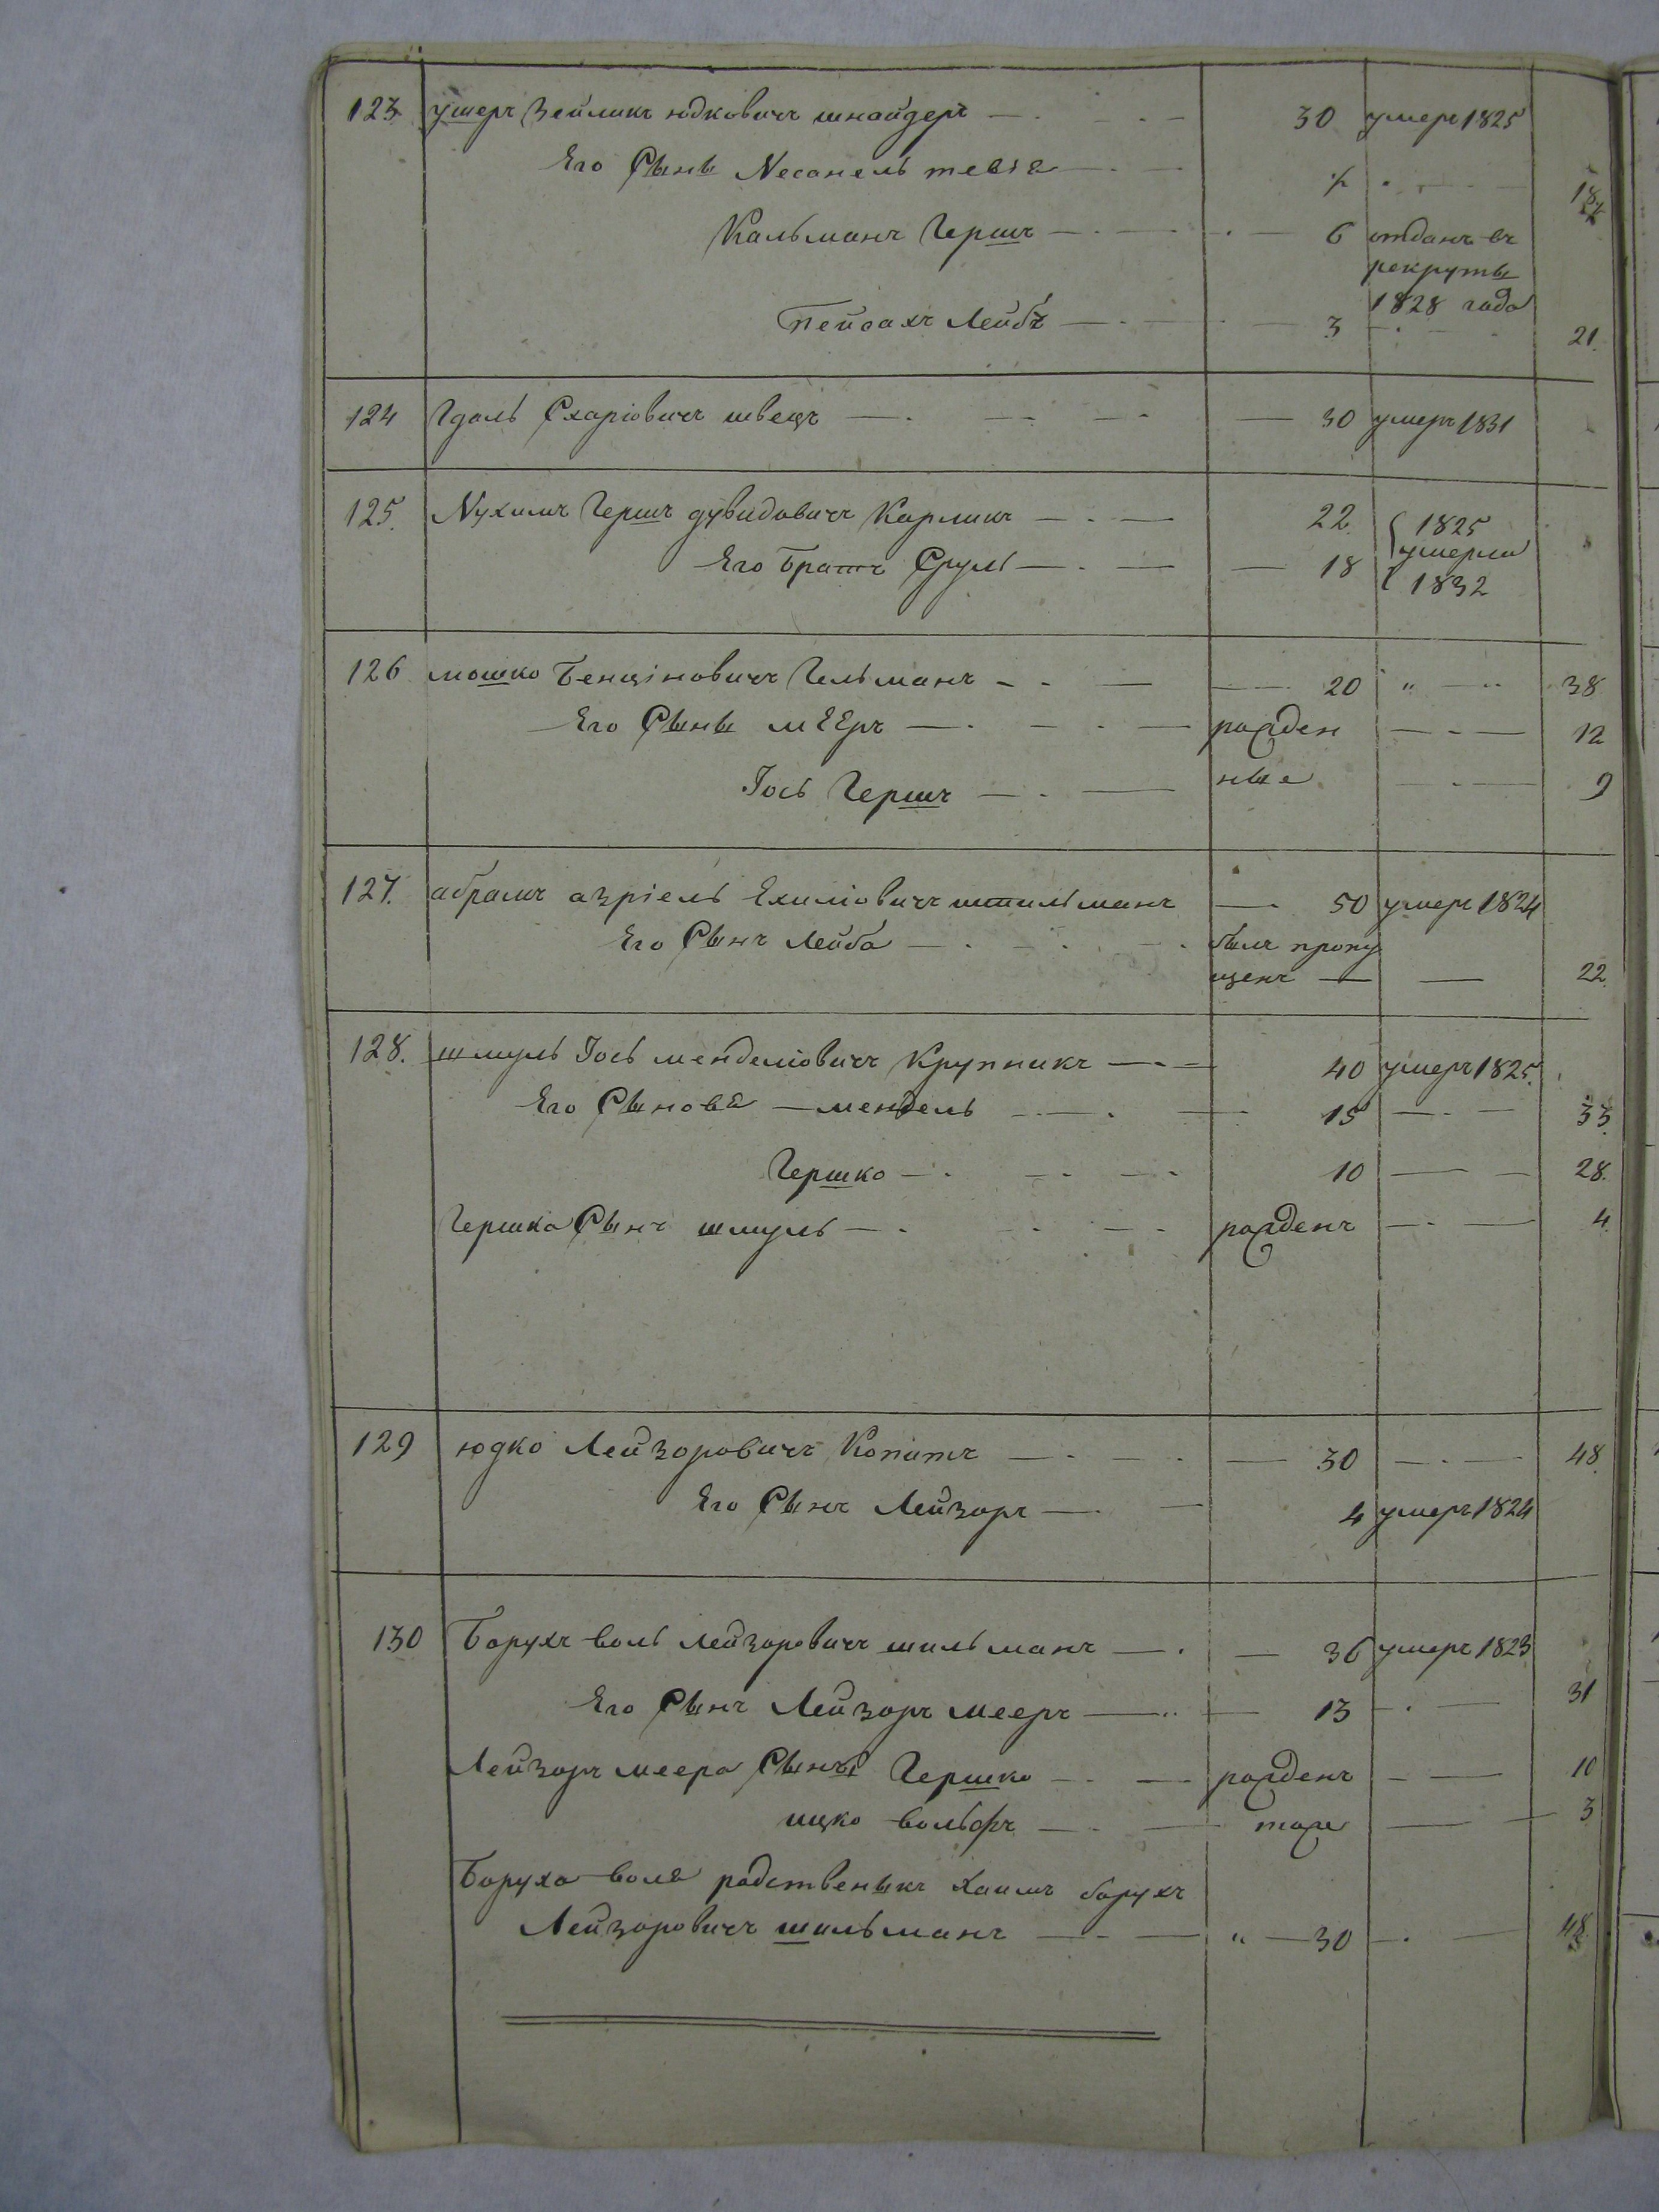 123. ушеръ Зейликъ юдковичъ шнайдеръ — 30 умеръ 1825
Его Сыны Nесанель тевіе —
18
Кальманъ Гершъ — 6 отданъ въ
рекруты
1828 года
Пейсахъ Лейбъ — 3 — 21.
124 Гдаль Схаріовичъ швецъ — 30 умеръ 1831
125. Nухимъ Гершъ дувидовичъ Карликъ — 22 1825
Его Братъ Сруль — 18 умерли
1832
126 мошко Бенціновичъ Гельманъ — 20 " — 38
Его Сыны мЕЕръ — рожден — 12
Іось Гершъ — ные — 9
127. абрамъ азріель Ехиліовичъ штильманъ — 50 умеръ 1824
Его Сынъ Лейба — былъ пропу
щенъ — 22.
128. шмуль Іось менделіовичъ Крупникъ — 40 умеръ 1825.
Его Сыновѣ — мендель — 15 — 33.
Гершко — 10 — 28.
Гершка Сынъ шмуль — рожденъ — 4.
129 юдко Лейзоровичъ Копитъ — 30 — 48.
Его Сынъ Лейзоръ — 4 умеръ 1824
130 Борухъ воль Лейзоровичъ шильманъ — 36 умеръ 1823
Его Сынъ Лейзоръ мееръ — 13 — 31
Лейзоръ меера Сыны Гершко — рожденъ — 10
ицко вольфъ — тоже — 3
Боруха воля родственыкъ Хаимъ борухъ
Лейзоровичъ шильманъ — " — 30 — 48.